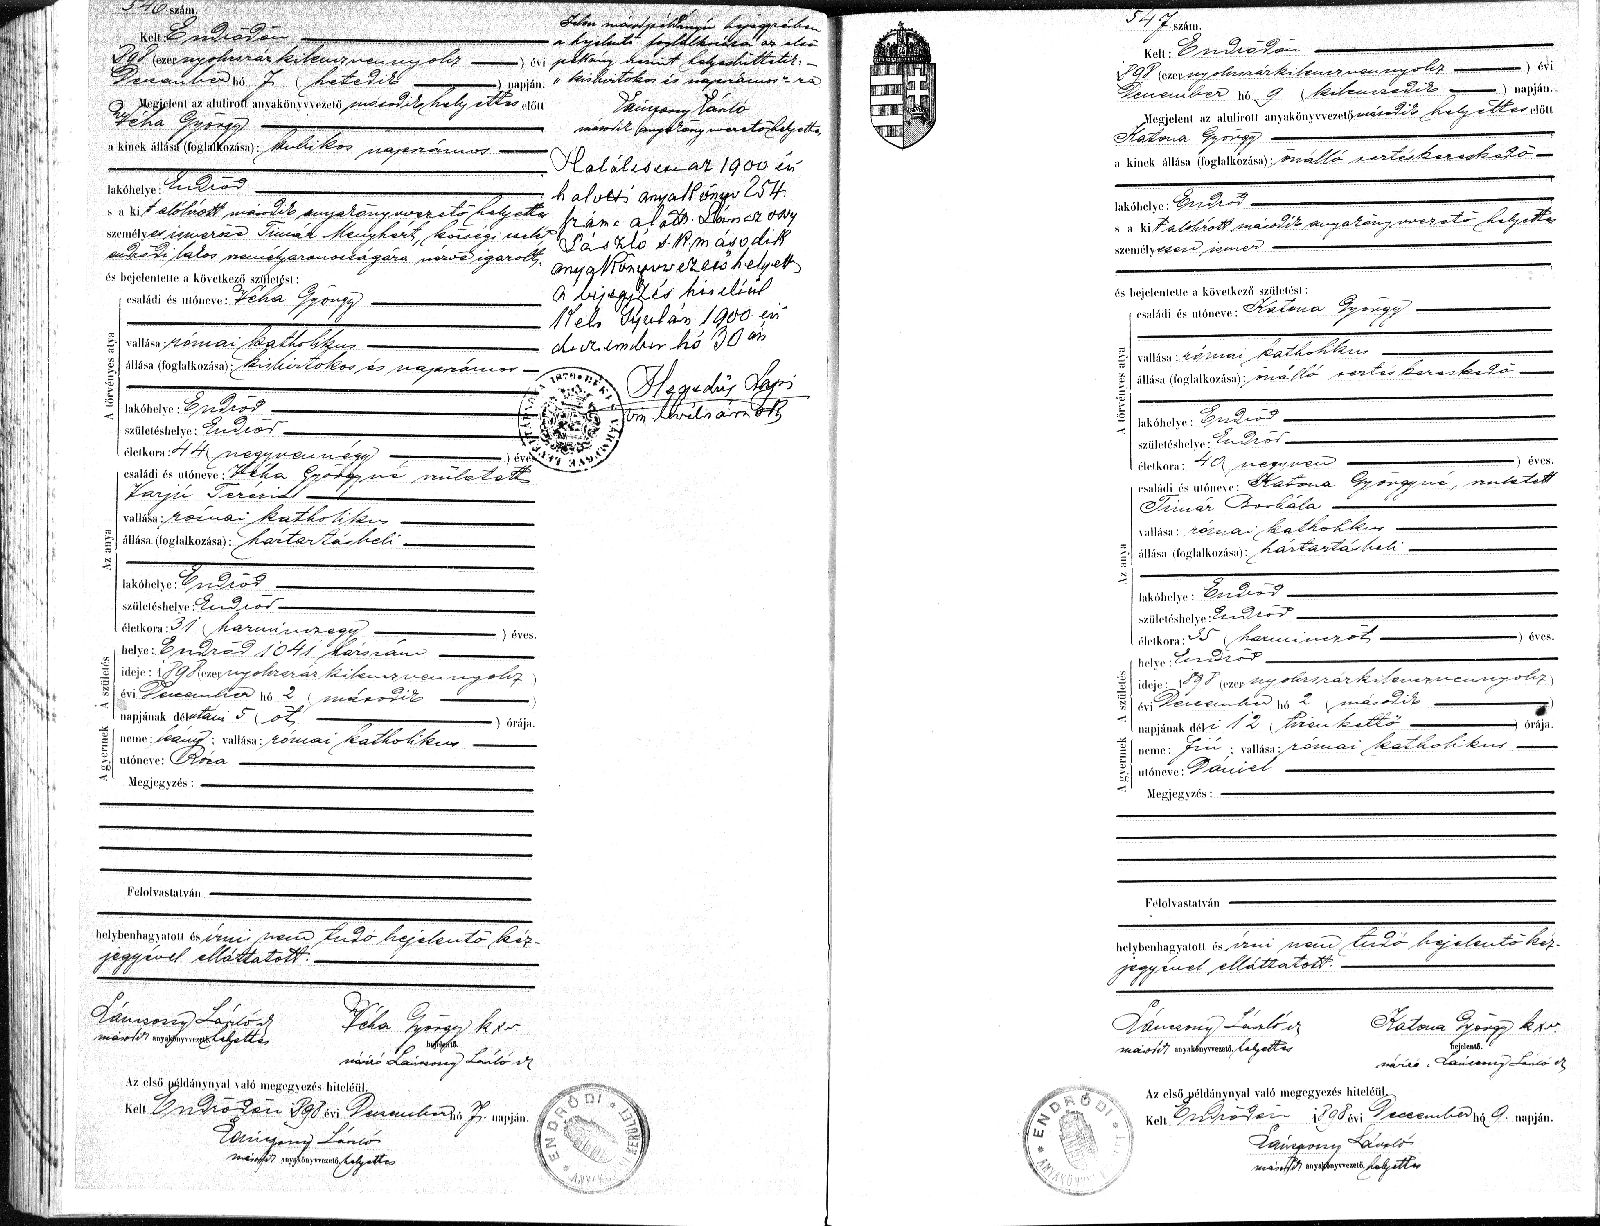 546 szám.
Kelt: Endrődön
898 (ezernyolczszázkilenczvennyolcz) évi
December hó 7 (hetedik) napján.
Megjelent az alulirott anyakönyvvezető második helyettes előtt
Véha György
a kinek állása (foglalkozása): kubikos napszámos
lakóhelye: Endrőd
s a kit alólírott második anyakönyvvezető helyettes
személyes ismerőse Timár Menyhért, községi
endrődi lakos személyazonosságára nézve igazolt,
és bejelentette a következő születést:
A törvényes atya
családi és utóneve: Véha György
vallása: római katholikus
állása (foglalkozása): kisbirtokos és napszámos
lakóhelye: Endrőd
születéshelye: Endrőd
életkora: 44 (negyvennégy) éves.
Az anya
családi és utóneve: Véha Györgyné született
Varjú Terézia
vallása: római katholikus
állása (foglalkozása): háztartásbeli
lakóhelye: Endrőd
születéshelye: Endrőd
életkora: 31 (harminczegy) éves.
A születés
helye: Endrőd 1041 házszám
ideje: 1898 (ezernyolczszázkilenczvennyolcz)
évi December hó 2 (második)
napjának délutáni 5 (öt) órája.
A gyermek
neme: leány; vallása: római katholikus
utóneve: Róza
Megjegyzés:
Felolvastatván
helybenhagyatott és írni nem tudó bejelentő kéz-
jegyével elláttatott.
Lánczony László sk
második anyakönyvvezető helyettes
Véha György k x v
bejelentő.
névíró Lánczony László sk
Az első példánynyal való megegyezés hiteléül.
Kelt Endrődön 898 évi December hó 7. napján.
Lánczony László
második anyakönyvvezető helyettes
ENDRŐDI
Jelen másodpéldányi bejegyzésben
a bejelentő foglalkozása az első
példány szerint helyesbíttetik:
"kisbirtokos és napszámos"-ra
Lánczony László
második anyakönyvvezető helyettes
Halálesete az 1900 évi
halotti anyakönyv 254
szám alatt. Lánczony
László s. k. második
anyakönyvvezető helyett.
A bejegyzés hiteléül
Kelt Gyulán 1900 évi
deczember hó 30 án
Hegedűs
vm. levéltárnok
547 szám.
Kelt: Endrődön
898 (ezernyolczszázkilenczvennyolcz) évi
December hó 9 (kilenczedik) napján.
Megjelent az alulirott anyakönyvvezető második helyettes előtt
Katona György
a kinek állása (foglalkozása): önálló sertéskereskedő
lakóhelye: Endrőd
s a kit alólírott második anyakönyvvezető helyettes
személyesen ismer
és bejelentette a következő születést:
A törvényes atya
családi és utóneve: Katona György
vallása: római katholikus
állása (foglalkozása): önálló sertéskereskedő
lakóhelye: Endrőd
születéshelye: Endrőd
életkora: 40 (negyven) éves.
Az anya
családi és utóneve: Katona Györgyné, született
Timár Borbála
vallása: római katholikus
állása (foglalkozása): háztartásbeli
lakóhelye: Endrőd
születéshelye: Endrőd
életkora: 35 (harminczöt) éves.
A születés
helye: Endrőd
ideje: 1898 (ezernyolczszázkilenczvennyolcz)
évi December hó 2 (második)
napjának déli 12 (tizenkettő) órája.
A gyermek
neme: fiú; vallása: római katholikus
utóneve: Dániel
Megjegyzés:
Felolvastatván
helybenhagyatott és írni nem tudó bejelentő kéz-
jegyével elláttatott.
Lánczony László sk
második anyakönyvvezető helyettes
Katona György k x v.
bejelentő.
névíró: Lánczony László sk
Az első példánynyal való megegyezés hiteléül.
Kelt Endrődön 1898 évi December hó 9. napján.
Lánczony László
második anyakönyvvezető helyettes
ENDRŐDI